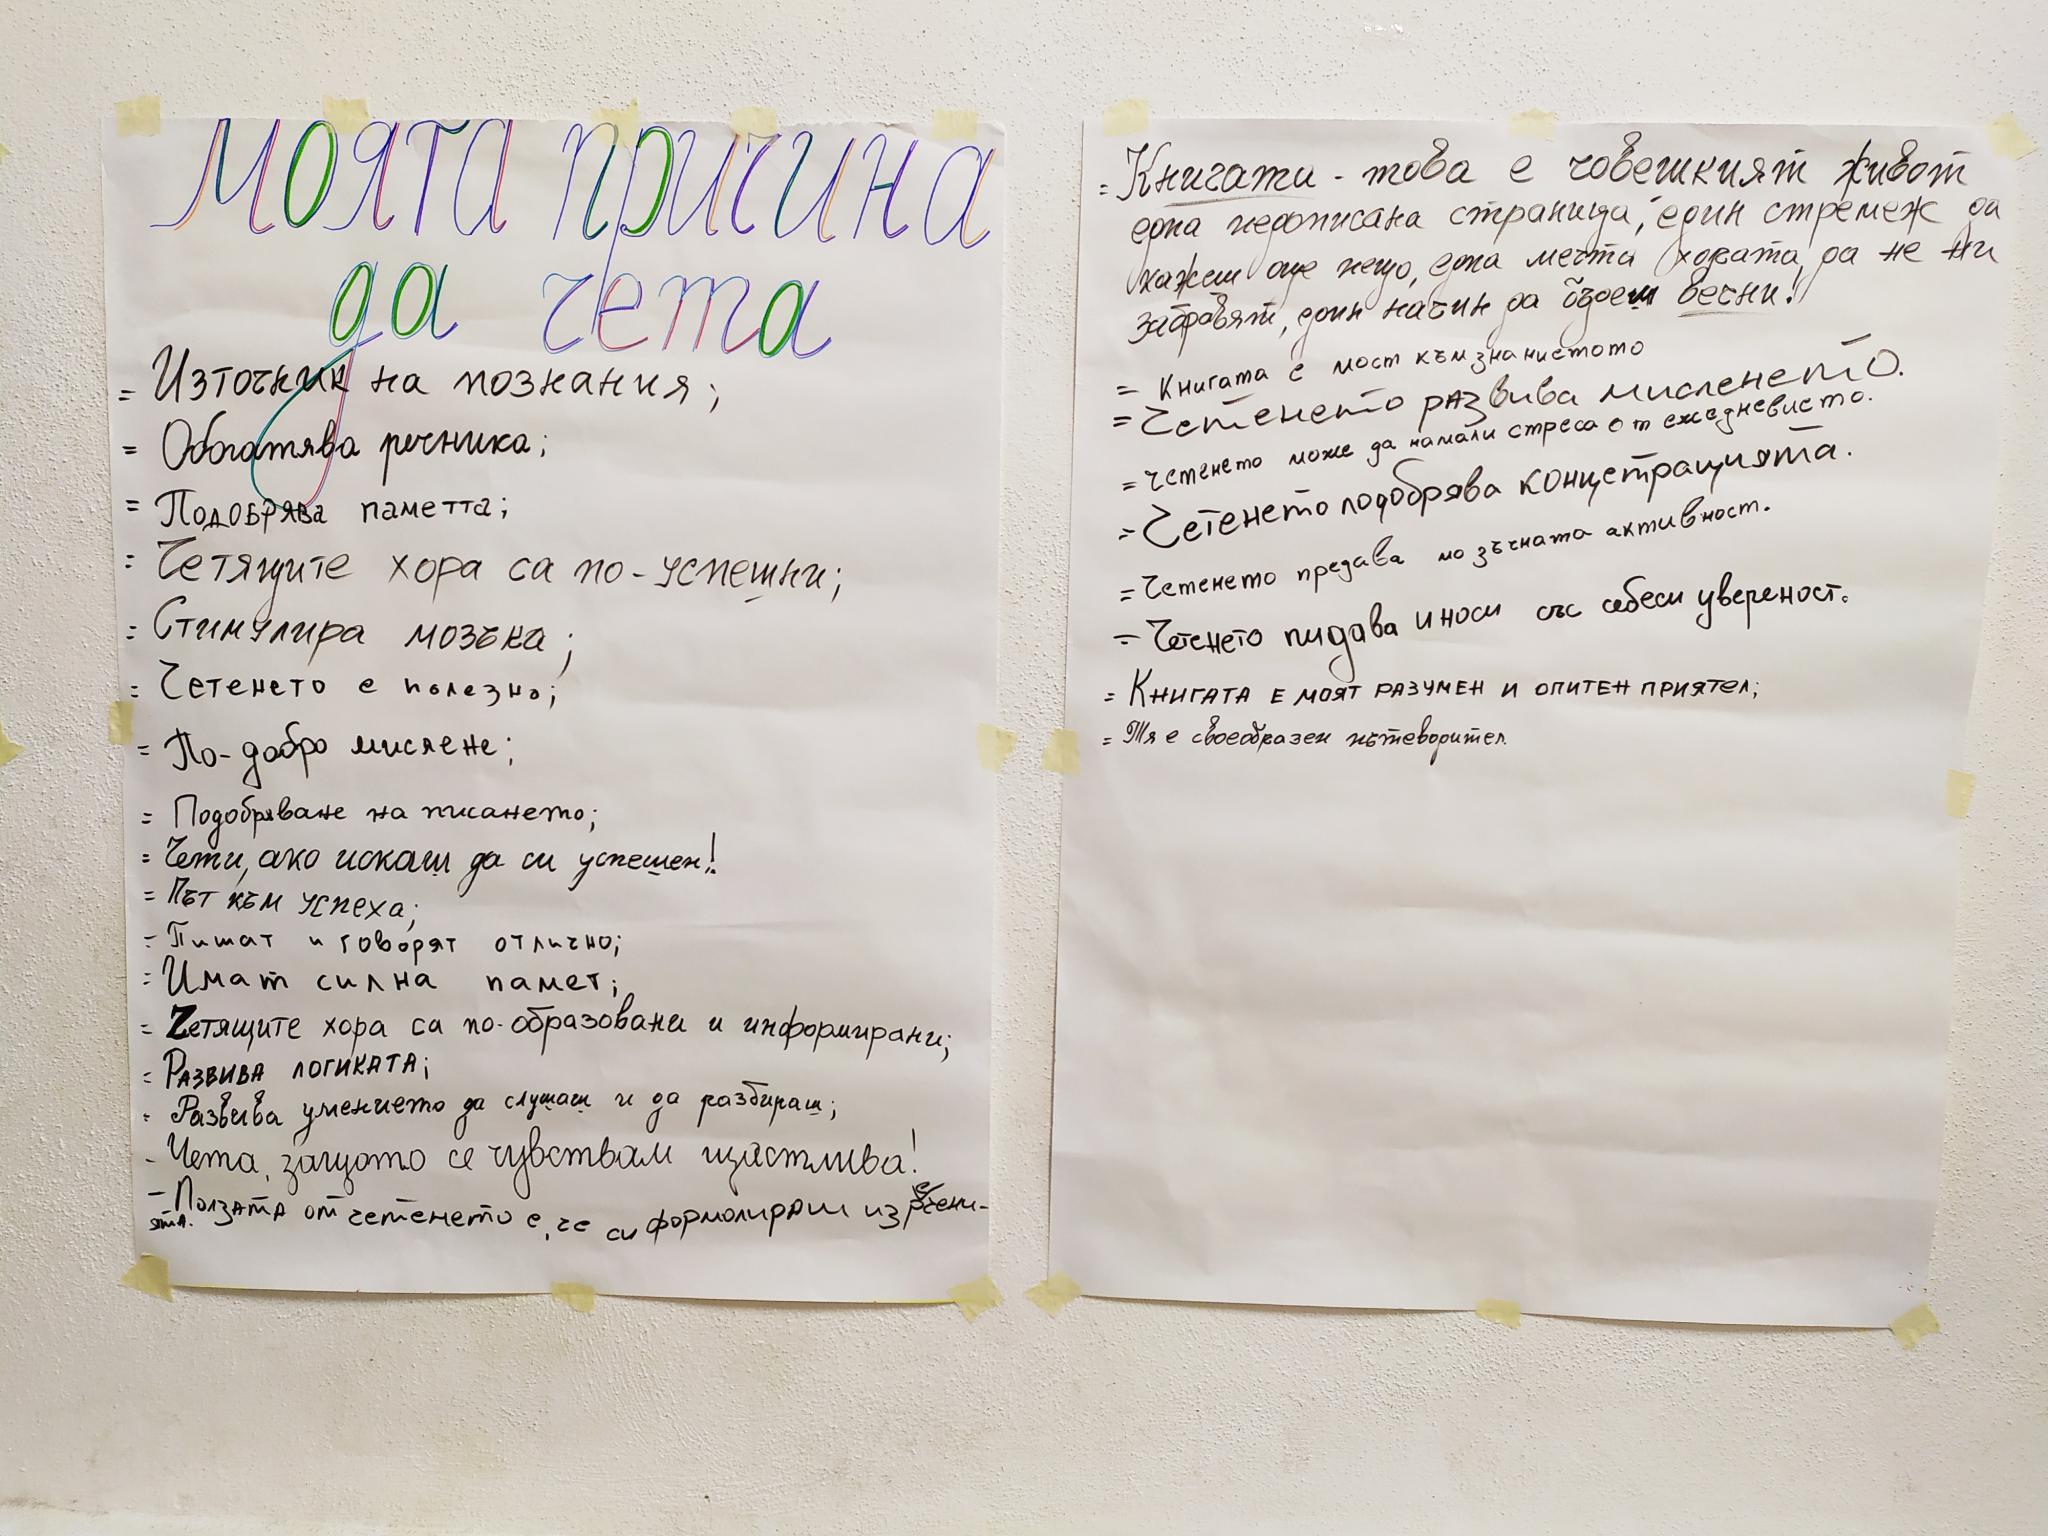 Моята причина
да чета
= Източник на познания;
= Обогатява речника;
= Подобрява паметта;
= Четящите хора са по-успешни;
= Стимулира мозъка;
= Четенето е полезно;
= По-добро мислене;
= Подобряване на писането;
= Чети, ако искаш да си успешен!
= Път към успеха;
= Пишат и говорят отлично;
= Имат силна памет;
= Четящите хора са по-образовани и информирани;
= Развива логиката;
= Развива умението да слушаш и да разбираш;
- Чета, защото се чувствам щастлива!
- Ползата от четенето е, че си формолираш изречени-
ята.
= Книгата - това е човешкият живот
една недописана страница, един стремеж да
кажеш още нещо, една мечта хората да не ни
забравят, един начин да бъдеш вечни!
= Книгата е мост към знанистото
= Четенето развива мисленето.
= Четенето може да намали стреса от ежедневисто.
= Четенето подобрява концетрацията.
= Четенето предава мозъчната активност.
= Четенето придава и носи със себеси увереност.
= Книгата е моят разумен и опитен приятел;
= Тя е своеобразен пътеводител.